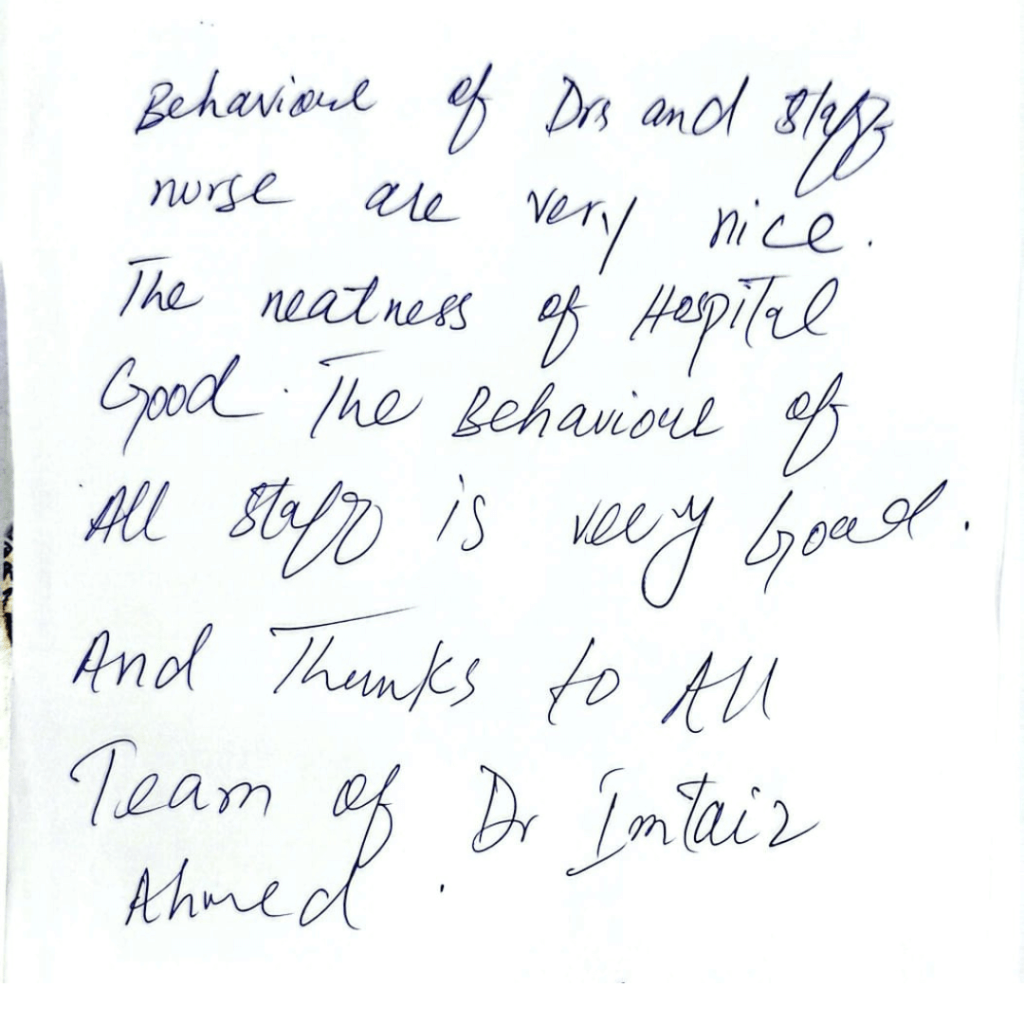 Behaviour of Drs and Staff
nurse are very nice.
The neatness of Hospital
Good. The Behaviour of
All Staff is very Good.
And Thanks to All
Team of Dr Imtaiz
Ahmed.